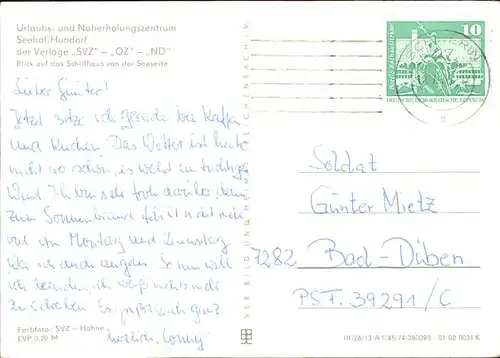 Urlaubs- und Naherholungszentrum
Seehof/Hundorf
der Verlage „SVZ" – „OZ" – „ND"
Blick auf das Schilfhaus von der Seeseite
10
DEUTSCHE DEMOKRATISCHE REPUBLIK
Lieber Günter!
Jetzt sitze ich gerade bei Kaffee
und Kuchen. Das Wetter ist heute
nicht so schön, es weht ein tüchtiger
Wind. Ich bin sehr froh darüber, denn
zum Sonnenbrand fehlt nicht mehr
viel. Am Montag und Dienstag
war ich auch angeln. So nun will
ich beenden, ich weiß nichts mehr
zu schreiben. Es grüßt Dich ganz
herzlich, Conny
Soldat
Günter Mietz
7282 Bad-Düben
PSF. 39291/C
VEB BILD UND
Farbfoto: SVZ – Höhne
EVP 0,20 M
III/26/13 A 1/45/74-280090 01 02 0031 K